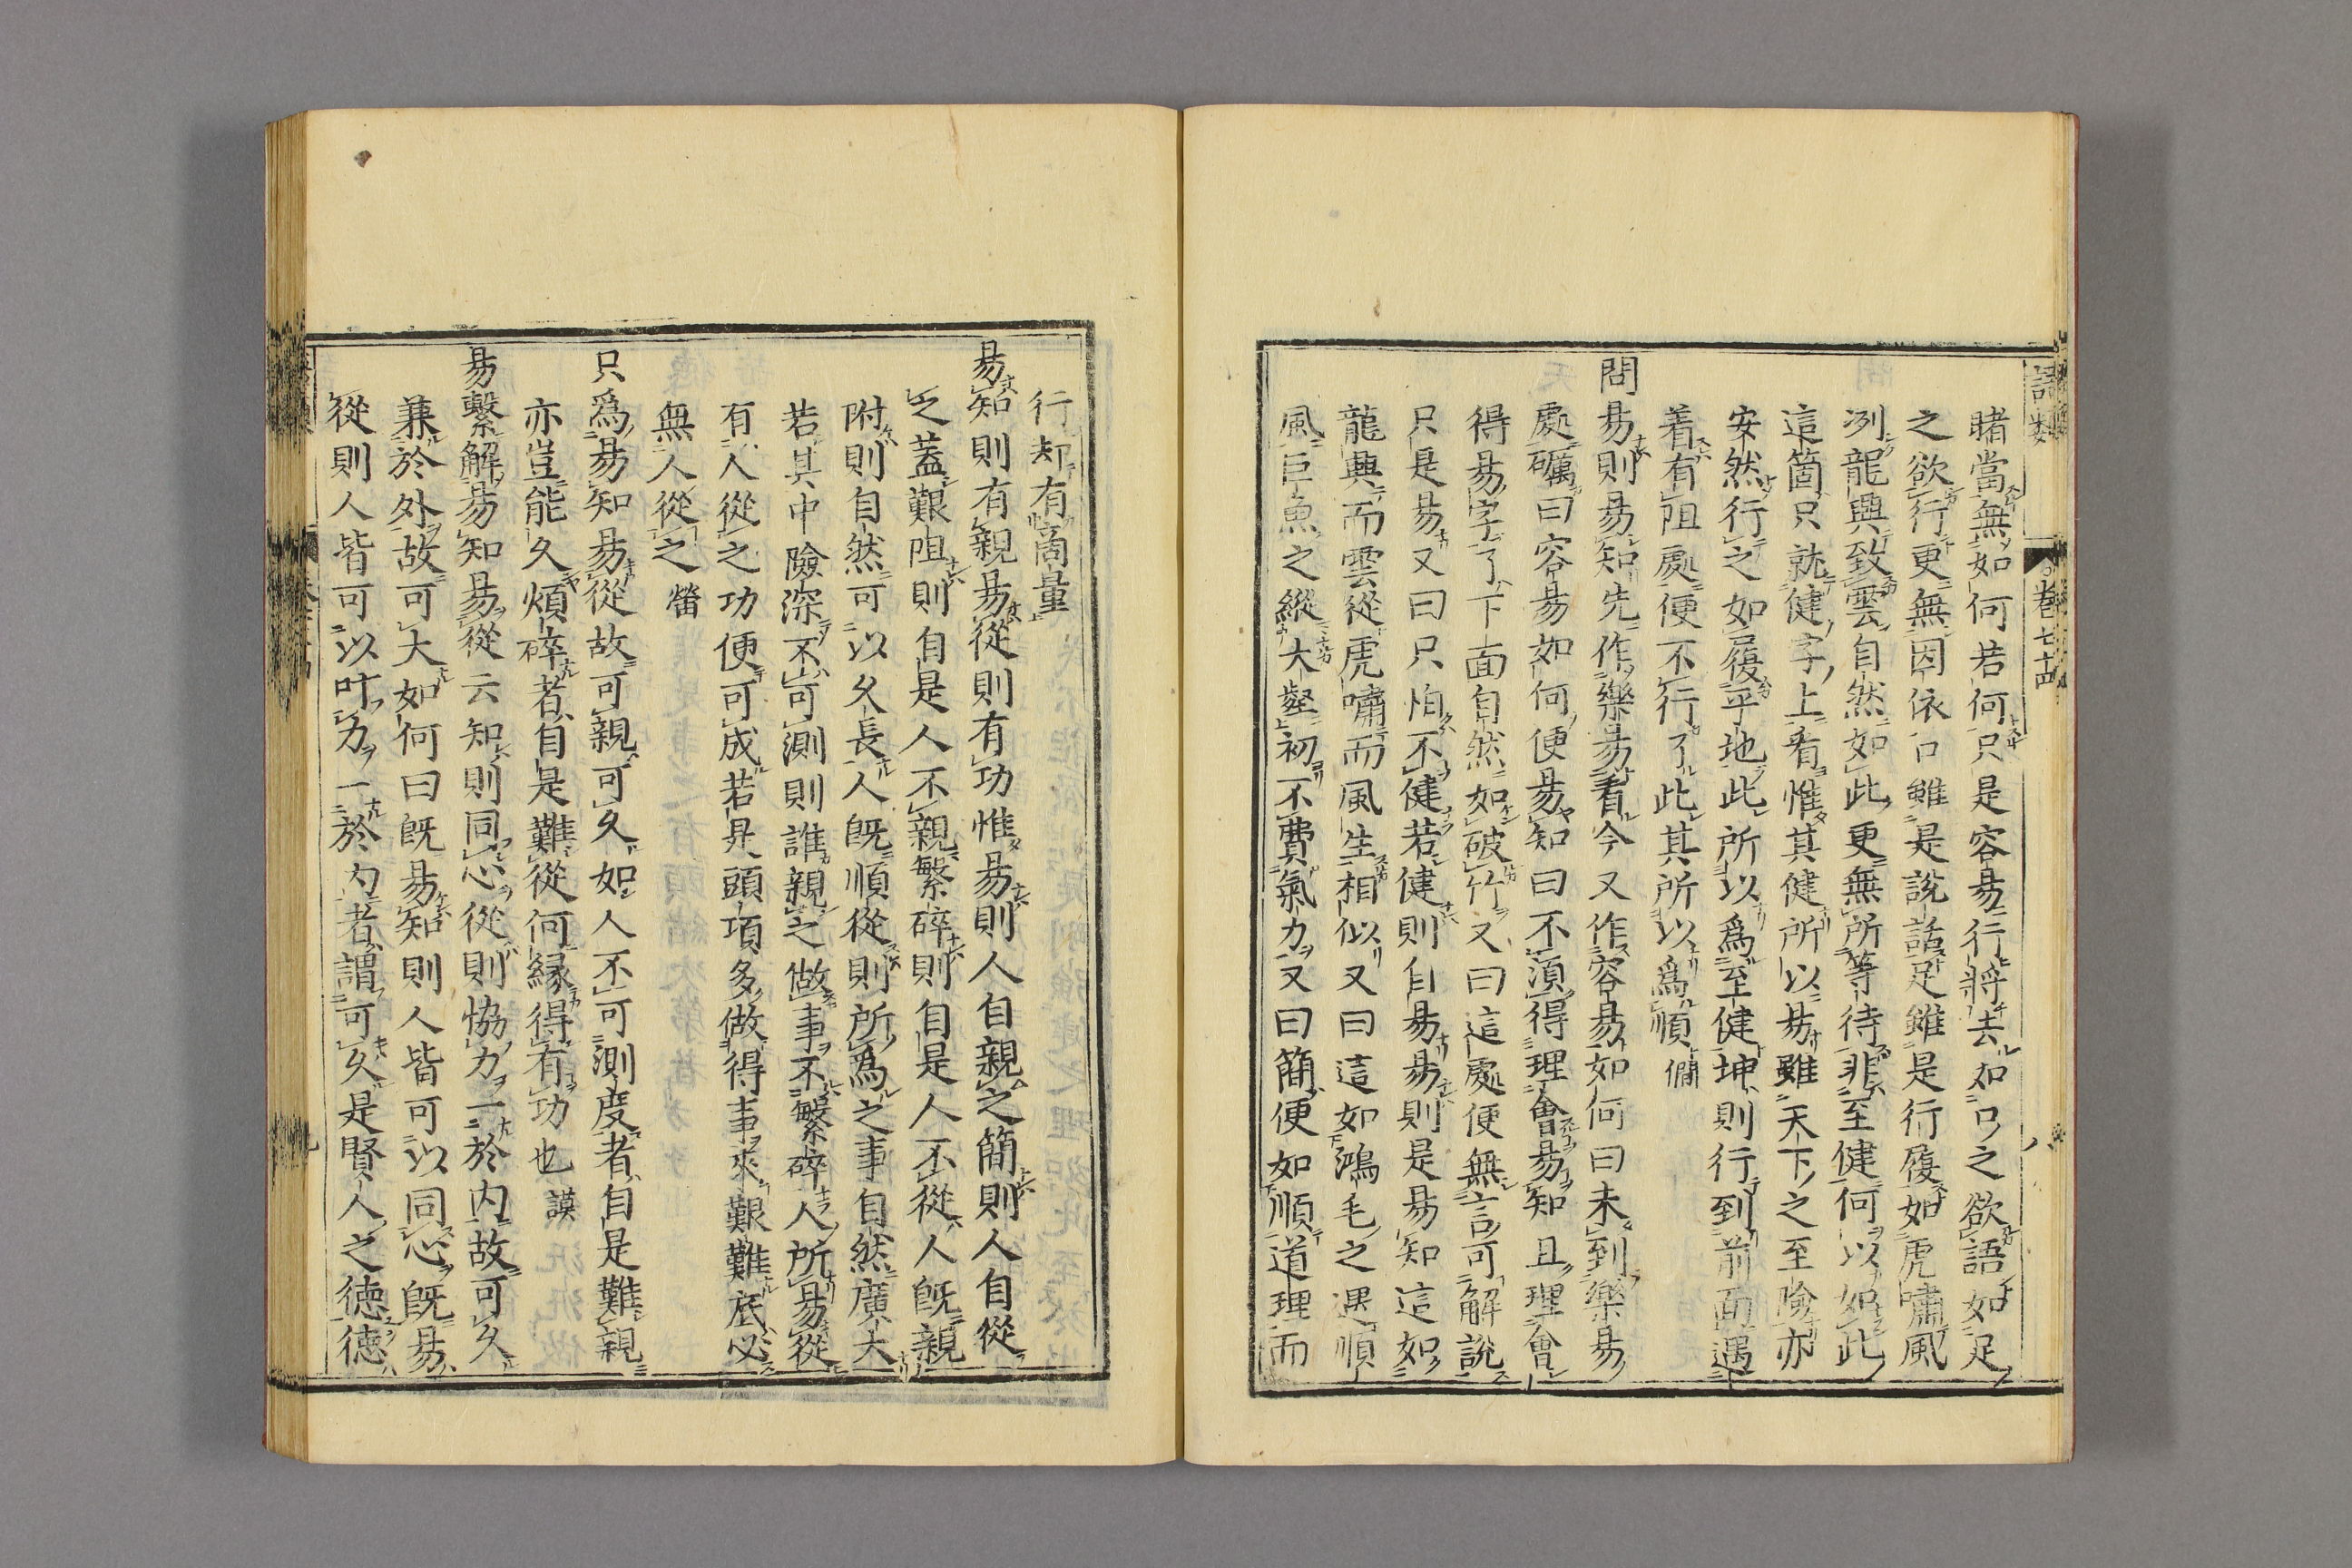 語類
卷七十四
八
睹當無如何若何只是容昜行將去如口之欲語如足
之欲行更無因依口雖是說話足雖是行履如虎嘯風
冽龍興致雲自然如此更無所等待非至健何以如此
這箇只就健字上看惟其健所以昜雖天下之至險亦
安然行之如履平地此所以爲至健坤則行到前面遇
着有阻處便不行了此其所以爲順僩
問昜則昜知先作樂昜看今又作容昜如何曰未到樂昜
處礪曰容昜如何便昜知曰不湏得理會昜知且理會
得昜字了下面自然如破竹又曰這處便無言可解說
只是昜又曰只怕不健若健則自昜昜則是昜知這如
龍興而雲從虎嘯而風生相似又曰這如鴻毛之遇順
風巨魚之縱大壑初不費氣力又曰簡便如順道理而
行却有商量
昜知則有親昜從則有功惟昜則人自親之簡則人自從
之蓋艱阻則自是人不親繁碎則自是人不從人旣親
附則自然可以久長人旣順從則所爲之事自然廣大
若其中險深不可測則誰親之做事不繁碎人所昜從
有人從之功便可成若是頭項多做得事來艱難底必
無人從之㽦
只爲昜知昜從故可親可久如人不可測度者自是難親
亦豈能久煩碎者自是難從何縁得有功也謨
昜繫解昜知昜從云知則同心從則協力一於内故可久
兼於外故可大如何曰旣昜知則人皆可以同心旣昜
從則人皆可以叶力一於内者謂可久是賢人之德德